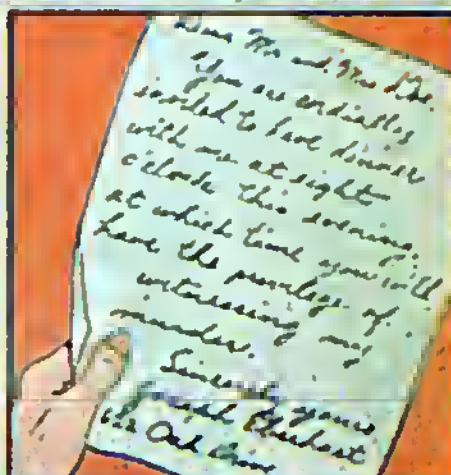 Dear Mr and Mrs
You are cordially
invited to have dinner
with me at eight
o'clock this evening,
at which time you will
have the privilege of
witnessing my
murder.
Sincerely yours
Oak Drive